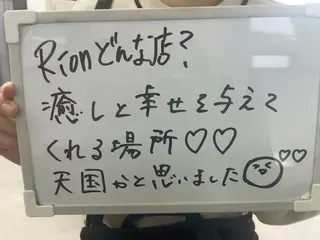 Rionどんな店?
癒しと幸せを与えて
くれる場所♡♡
天国かと思いました♡♡